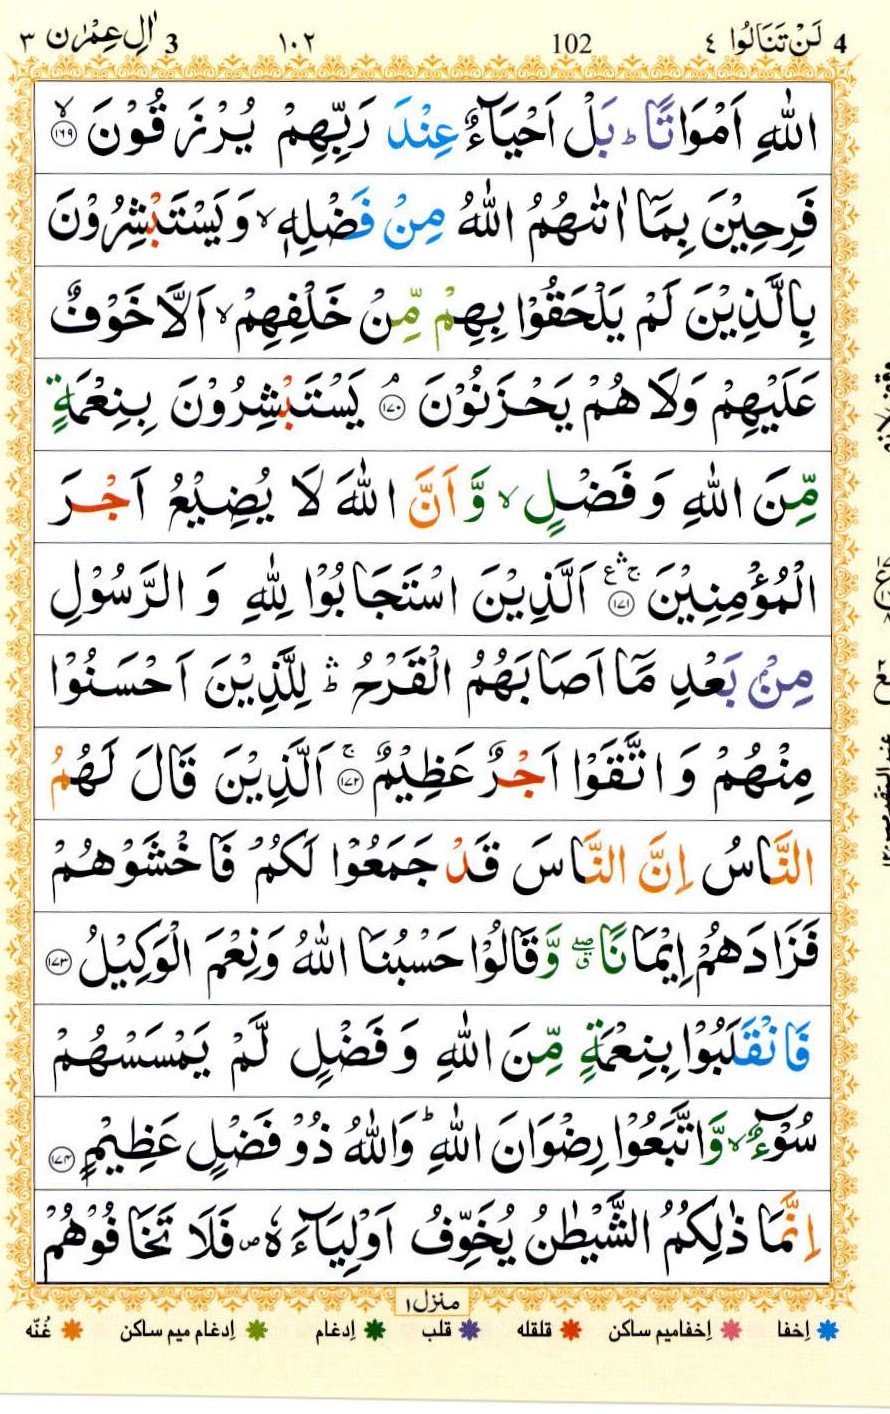 4 لَنْ تَنَالُوا ٤ 102 ١٠٢ 3 اٰلِ عِمْرٰن ٣
اللّٰهِ اَمْوَاتًا ؕ بَلْ اَحْيَآءٌ عِنْدَ رَبِّهِمْ يُرْزَقُوْنَ ۙ﴿۱۶۹﴾
فَرِحِيْنَ بِمَاۤ اٰتٰىهُمُ اللّٰهُ مِنْ فَضْلِهٖ ۙ وَيَسْتَبْشِرُوْنَ
بِالَّذِيْنَ لَمْ يَلْحَقُوْا بِهِمْ مِّنْ خَلْفِهِمْ ۙ اَلَّا خَوْفٌ
عَلَيْهِمْ وَلَا هُمْ يَحْزَنُوْنَ ۘ﴿۱۷۰﴾ يَسْتَبْشِرُوْنَ بِنِعْمَةٍ
مِّنَ اللّٰهِ وَ فَضْلٍ ۙ وَّ اَنَّ اللّٰهَ لَا يُضِيْعُ اَجْرَ
الْمُؤْمِنِيْنَ ۚۛ﴿۱۷۱﴾ اَلَّذِيْنَ اسْتَجَابُوْا لِلّٰهِ وَ الرَّسُوْلِ
مِنْۢ بَعْدِ مَاۤ اَصَابَهُمُ الْقَرْحُ ۛؕ لِلَّذِيْنَ اَحْسَنُوْا
مِنْهُمْ وَ اتَّقَوْا اَجْرٌ عَظِيْمٌ ۚ﴿۱۷۲﴾ اَلَّذِيْنَ قَالَ لَهُمُ
النَّاسُ اِنَّ النَّاسَ قَدْ جَمَعُوْا لَكُمْ فَاخْشَوْهُمْ
فَزَادَهُمْ اِيْمَانًا ۖۗ وَّقَالُوْا حَسْبُنَا اللّٰهُ وَنِعْمَ الْوَكِيْلُ ﴿۱۷۳﴾
فَانْقَلَبُوْا بِنِعْمَةٍ مِّنَ اللّٰهِ وَ فَضْلٍ لَّمْ يَمْسَسْهُمْ
سُوْٓءٌ ۙ وَّاتَّبَعُوْا رِضْوَانَ اللّٰهِ ؕ وَاللّٰهُ ذُوْ فَضْلٍ عَظِيْمٍ ﴿۱۷۴﴾
اِنَّمَا ذٰلِكُمُ الشَّيْطٰنُ يُخَوِّفُ اَوْلِيَآءَهٗ ۪ فَلَا تَخَافُوْهُمْ
منزل ١
اِخفا اِخفامیم ساکن قلقله قلب اِدغام اِدغام میم ساکن غُنّه